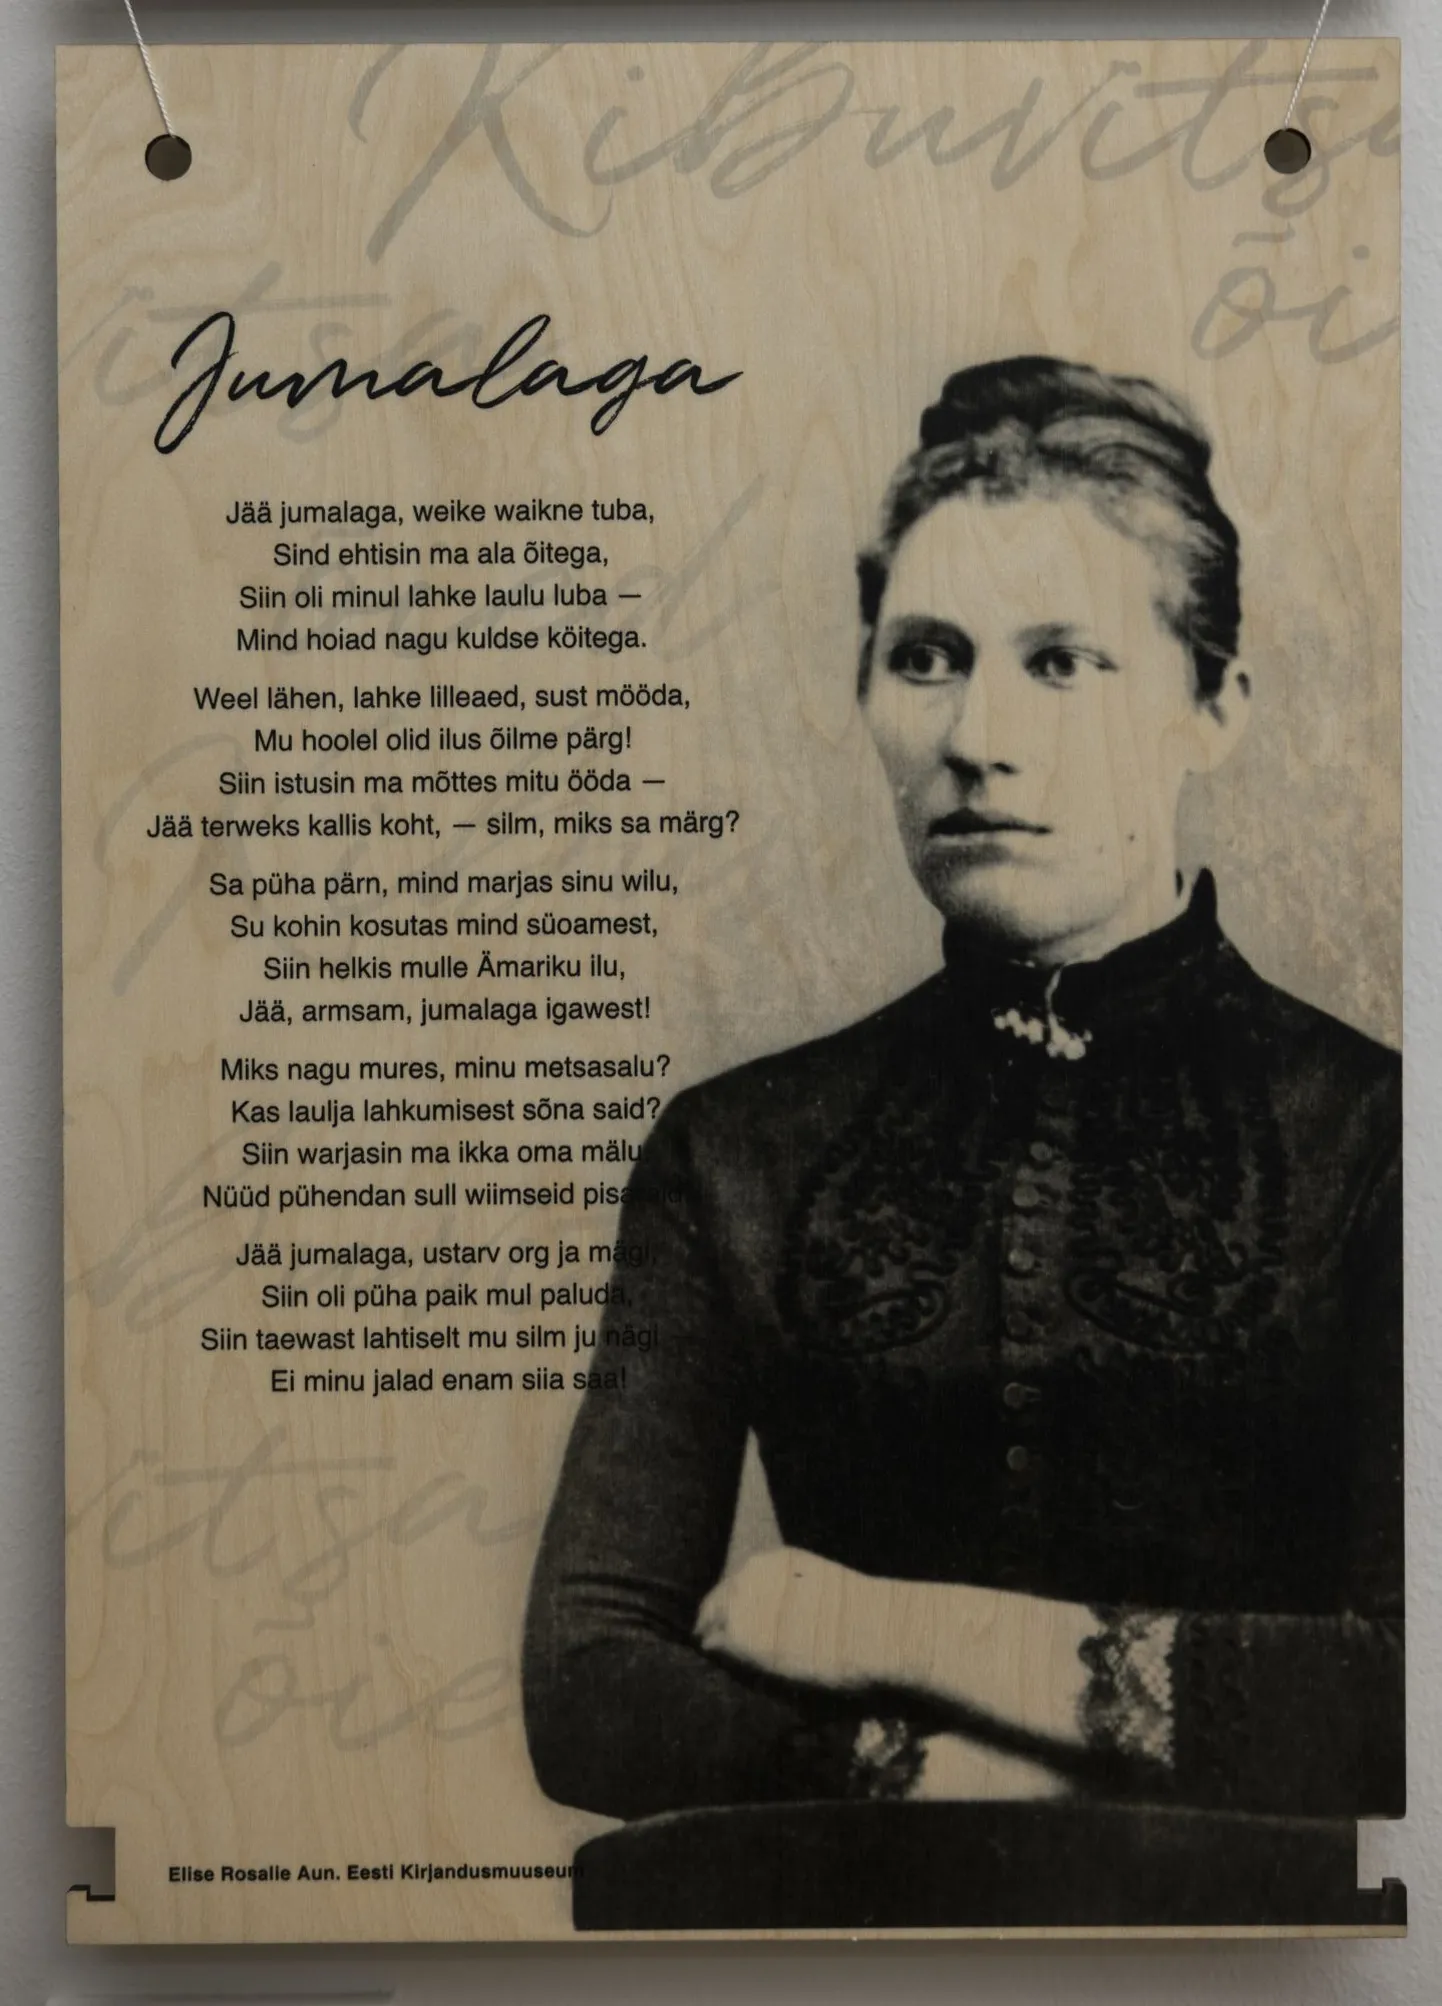 Kibuvitsa
õi
vitsa
Jumalaga
Jää jumalaga, weike waikne tuba,
Sind ehtisin ma ala õitega,
Siin oli minul lahke laulu luba —
Mind hoiad nagu kuldse köitega.
Weel lähen, lahke lilleaed, sust mööda,
Mu hoolel olid ilus õilme pärg!
Siin istusin ma mõttes mitu ööda —
Jää terweks kallis koht, — silm, miks sa märg?
Sa püha pärn, mind marjas sinu wilu,
Su kohin kosutas mind süoamest,
Siin helkis mulle Ämariku ilu,
Jää, armsam, jumalaga igawest!
Miks nagu mures, minu metsasalu?
Kas laulja lahkumisest sõna said?
Siin warjasin ma ikka oma mälu
Nüüd pühendan sull wiimseid pisaraid
Jää jumalaga, ustarv org ja mägi,
Siin oli püha paik mul paluda,
Siin taewast lahtiselt mu silm ju nägi
Ei minu jalad enam siia saa!
vitsa
õie
Elise Rosalie Aun. Eesti Kirjandusmuuseum